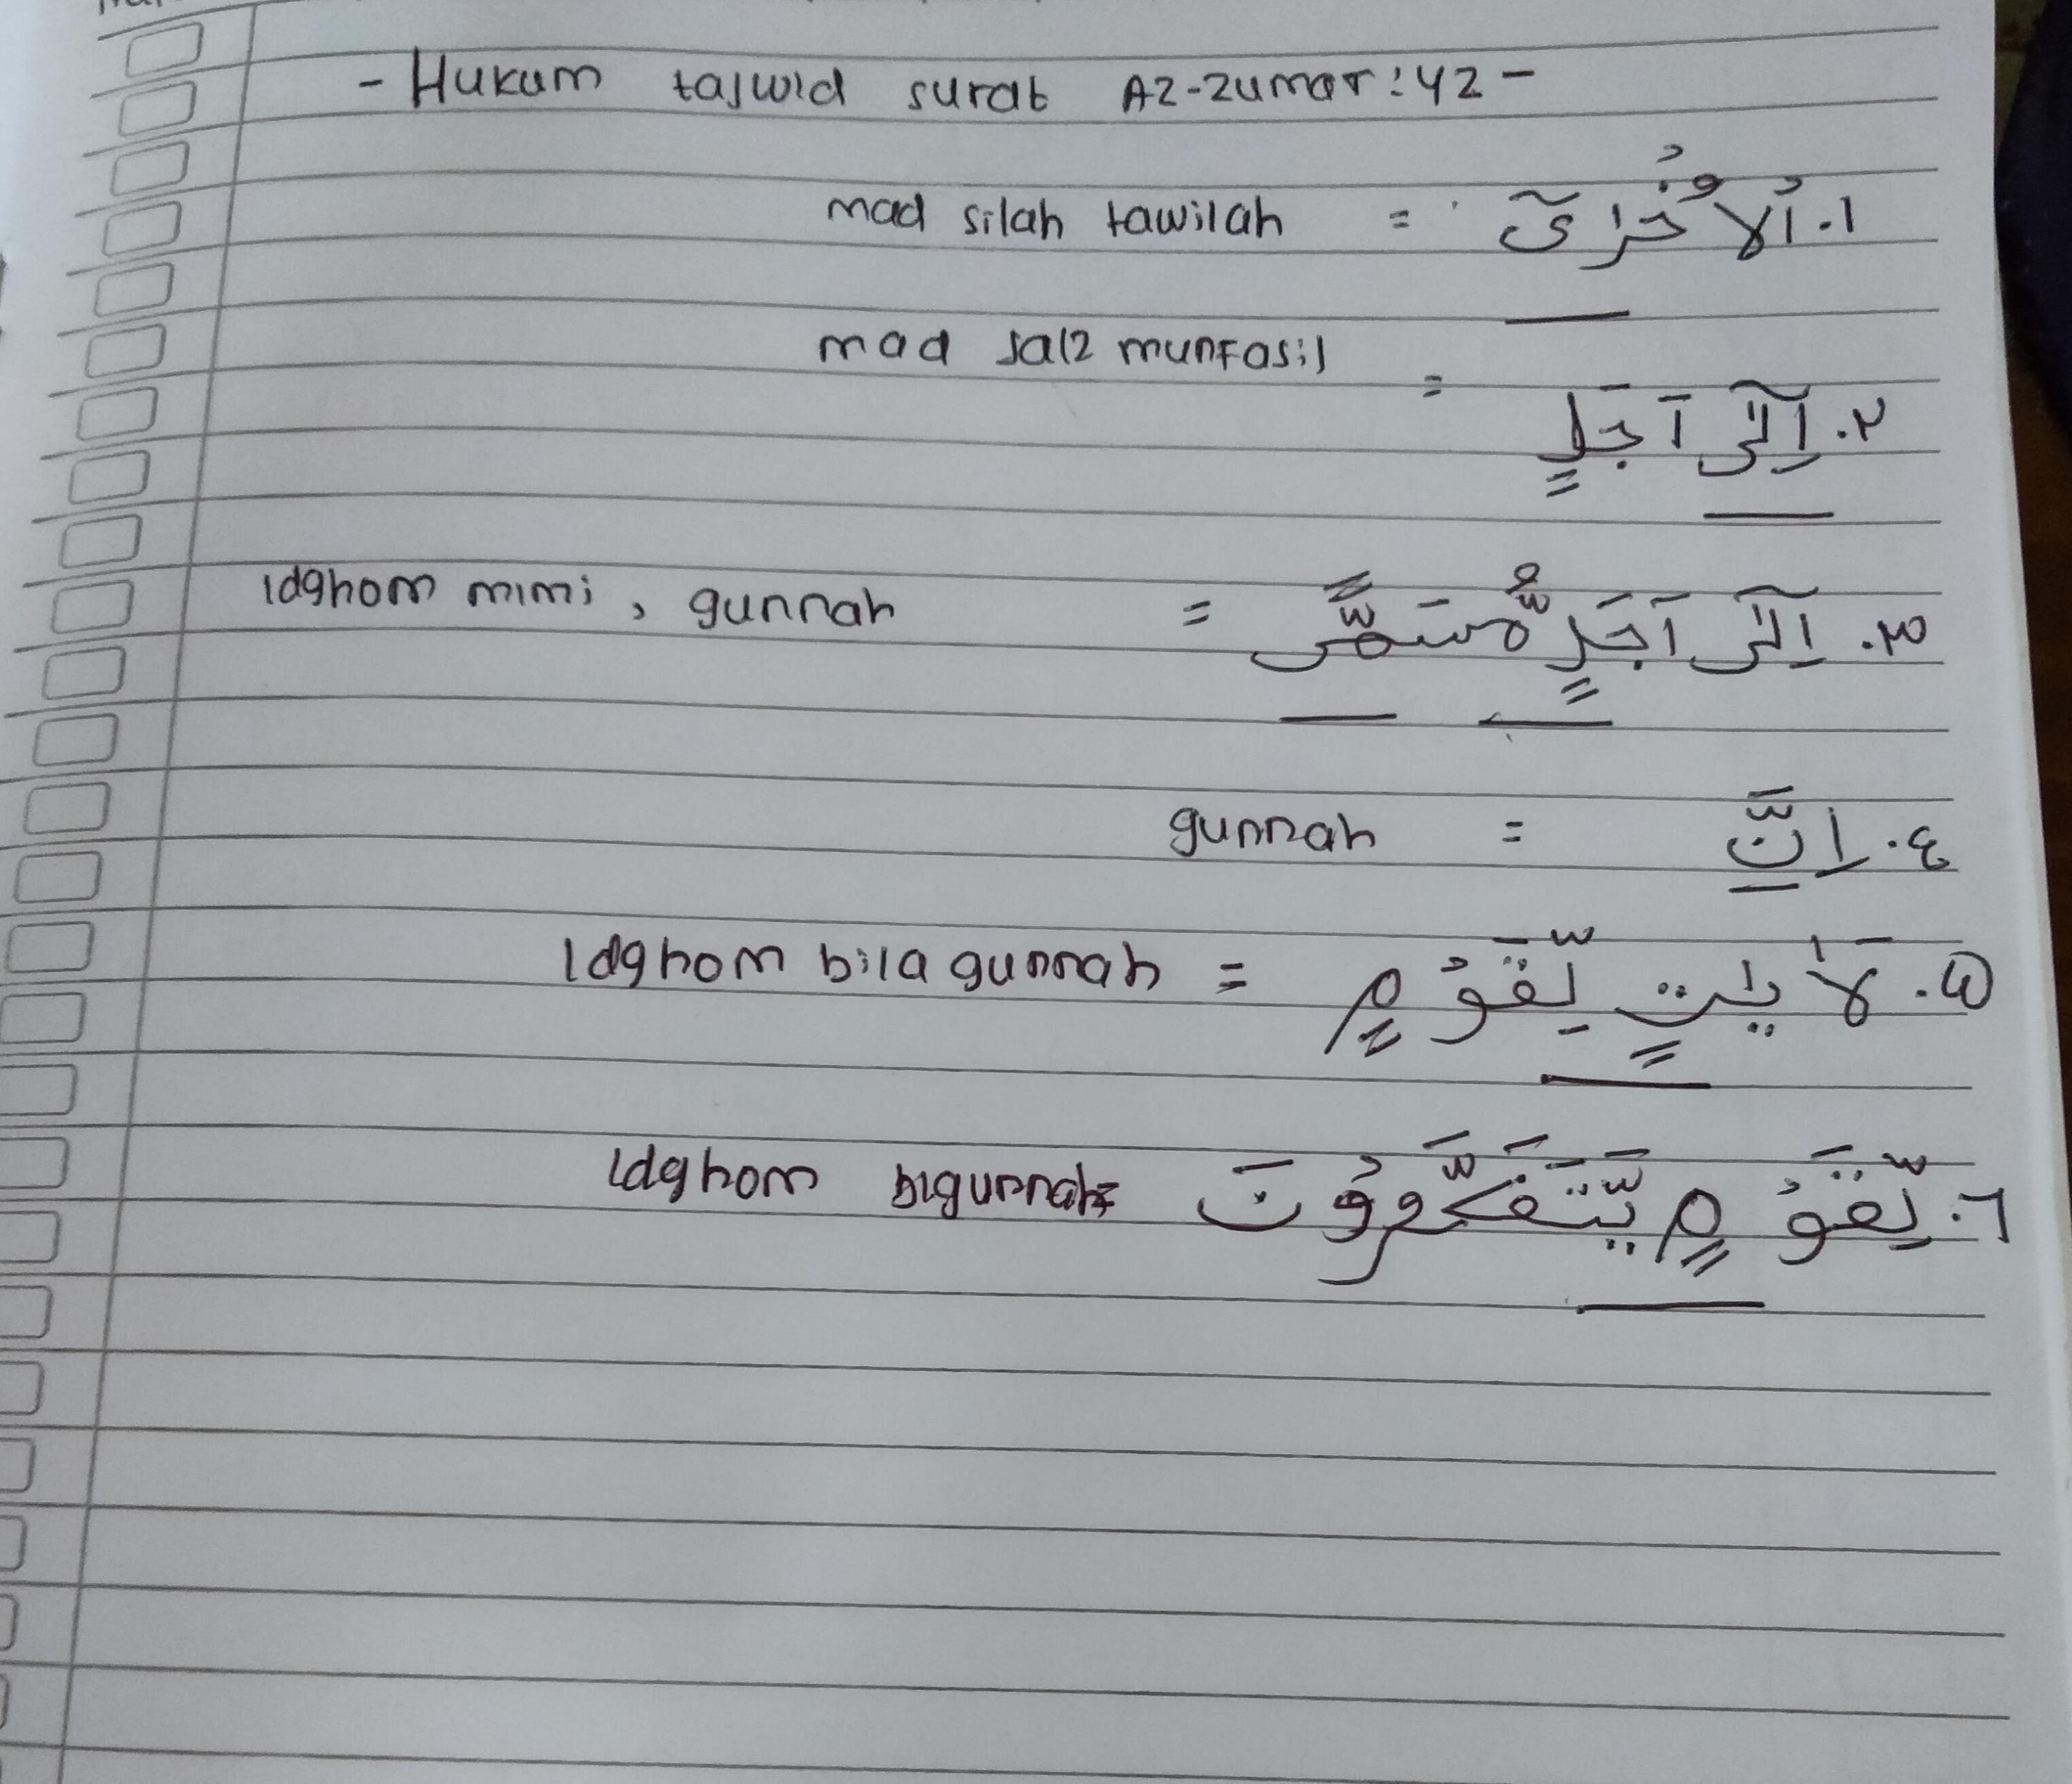 - Hukum tajwid surat Az-zumar : 42 -
١. اُلْاُخْرٰىٓ = mad silah tawilah
٢. اِلٰٓى اَجَلٍ = mad jaiz munfasil
٣. اِلٰٓى اَجَلٍ مُّسَمًّى = Idghom mimi, gunnah
٤. اِنَّ = gunnah
٥. لَاٰيٰتٍ لِّقَوْمٍ = Idghom bila gunnah
٦. لِّقَوْمٍ يَّتَفَكَّرُوْنَ = Idghom bigunnah